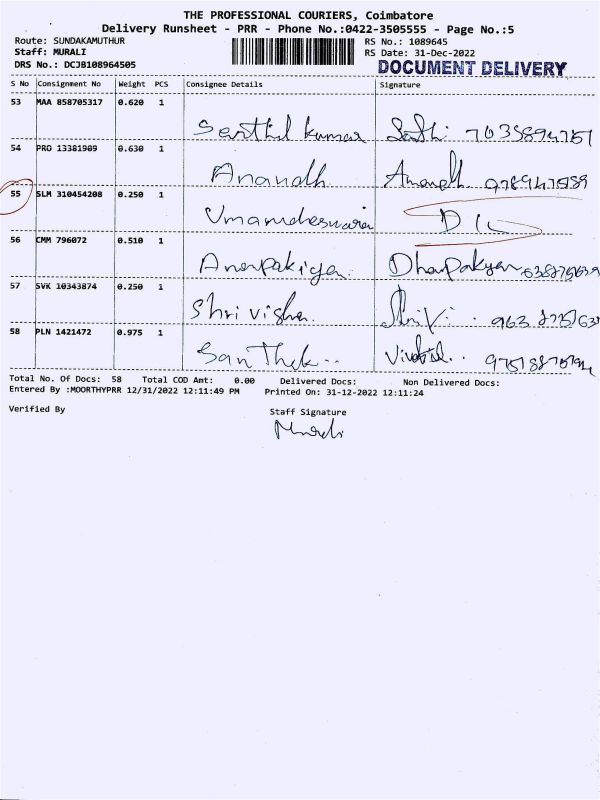 THE PROFESSIONAL COURIERS, Coimbatore
Delivery Runsheet - PRR - Phone No.:0422-3505555 - Page No.:5
Route: SUNDAKAMUTHUR RS No.: 1089645
Staff: MURALI RS Date: 31-Dec-2022
DRS No.: DCJB108964505 DOCUMENT DELIVERY
S No Consignment No Weight PCS Consignee Details Signature
53 MAA 858705317 0.620 1
Senthil kumar
54 PRO 13381909 0.630 1
Anandh Anandh
55 SLM 310454208 0.250 1
Umamaheswari D/L
56 CMM 796072 0.510 1
57 SVK 10343874 0.250 1
Shri visha
58 PLN 1421472 0.975 1
Total No. Of Docs: 58 Total COD Amt: 0.00 Delivered Docs: Non Delivered Docs:
Entered By :MOORTHYPRR 12/31/2022 12:11:49 PM Printed On: 31-12-2022 12:11:24
Verified By Staff Signature
Murali